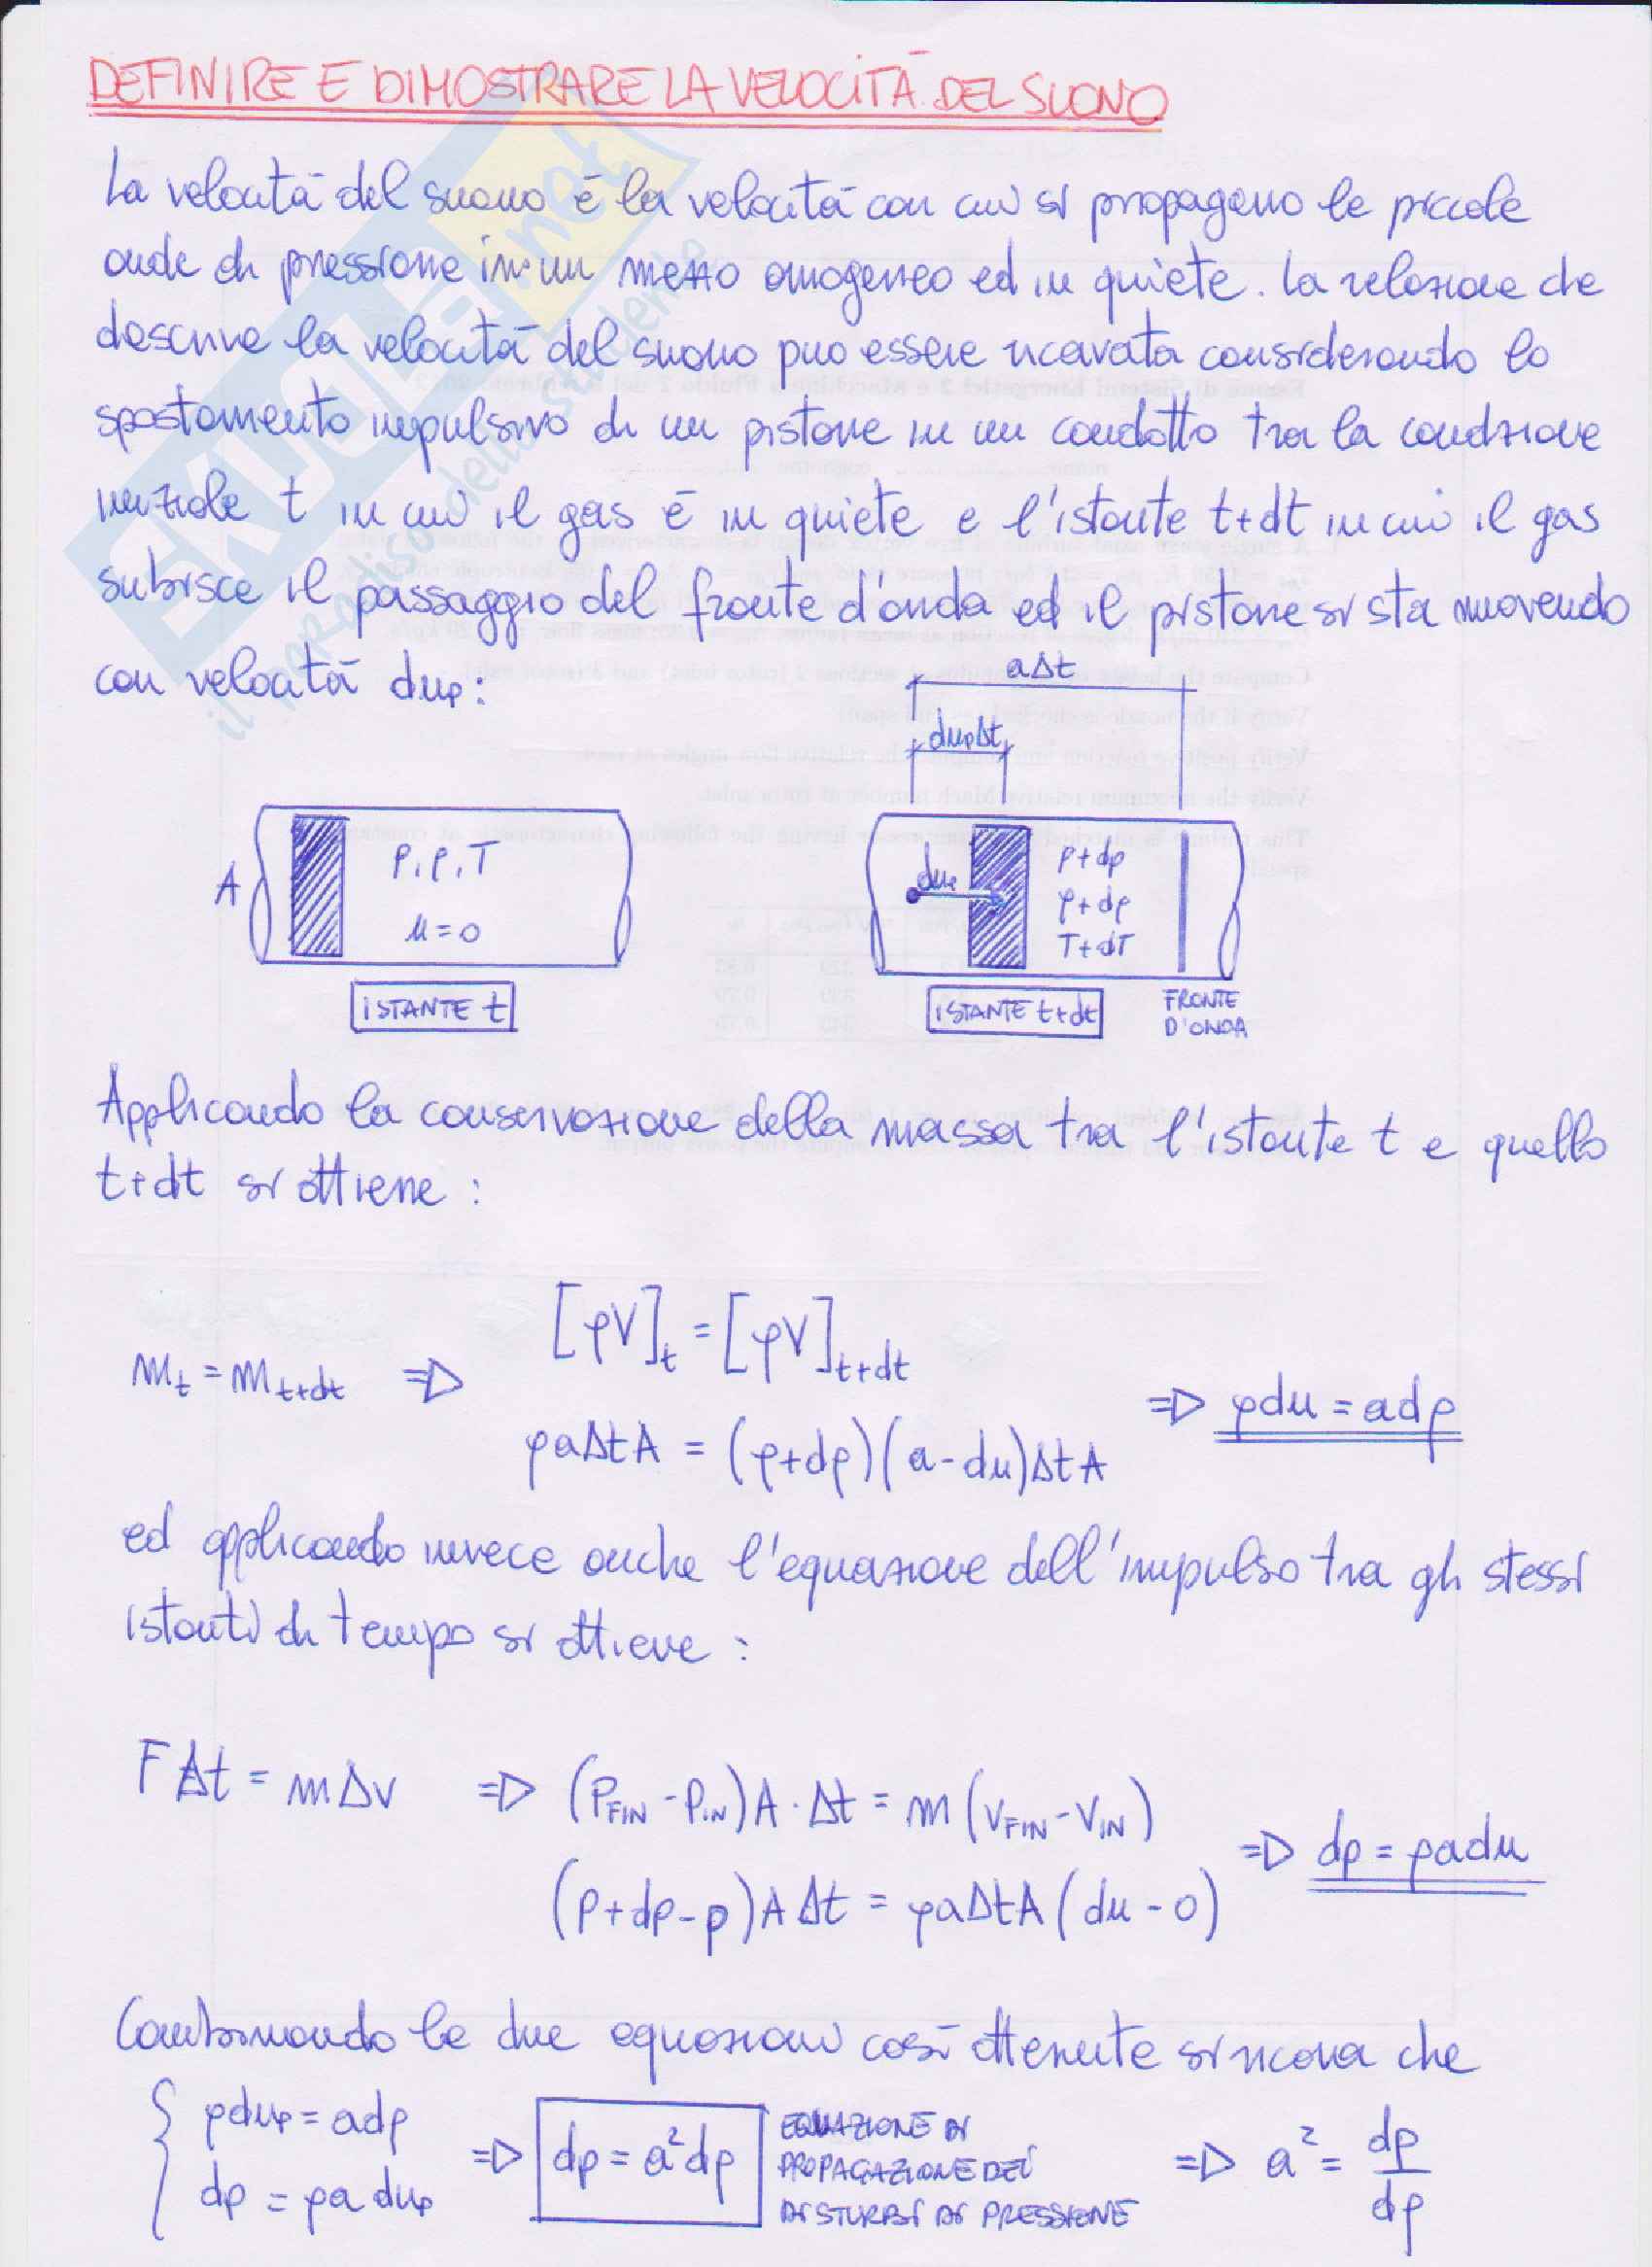 DEFINIRE E DIMOSTRARE LA VELOCITÀ DEL SUONO
La velocità del suono è la velocità con cui si propagano le piccole
onde di pressione in un mezzo omogeneo ed in quiete. La relazione che
descrive la velocità del suono può essere ricavata considerando lo
spostamento impulsivo di un pistone in un condotto tra la condizione
iniziale t in cui il gas è in quiete e l'istante t+dt in cui il gas
subisce il passaggio del fronte d'onda ed il pistone si sta muovendo
con velocità du_p:
aΔt
du_pΔt
A
p, ρ, T
u = 0
ISTANTE t
du_p
p+dp
ρ+dρ
T+dT
ISTANTE t+dt
FRONTE
D'ONDA
Applicando la conservazione della massa tra l'istante t e quello
t+dt si ottiene:
m_t = m_{t+dt} ⇒ [ρV]_t = [ρV]_{t+dt}
ρaΔtA = (ρ+dρ)(a-du)ΔtA ⇒ ρdu = adρ
ed applicando invece anche l'equazione dell'impulso tra gli stessi
istanti di tempo si ottiene:
FΔt = mΔv ⇒ (P_FIN - P_IN)A·Δt = m(V_FIN - V_IN)
(p+dp-p)AΔt = ρaΔtA(du-0) ⇒ dp = ρadu
Combinando le due equazioni così ottenute si ricava che
{ ρdu_p = adρ
dp = ρa du_p ⇒ dp = a²dρ
EQUAZIONE DI
PROPAGAZIONE DEI
DISTURBI DI PRESSIONE
⇒ a² = dp/dρ
SKUOLA.net
il paradiso dello studente